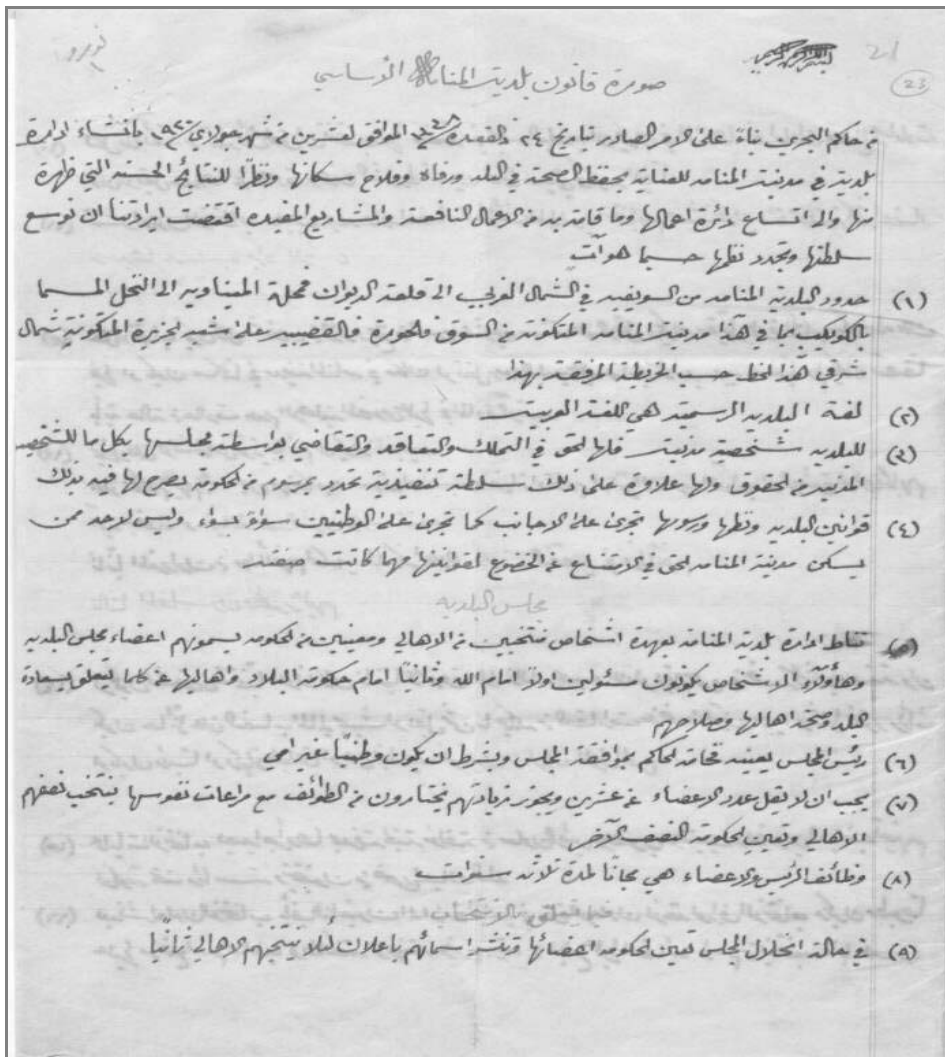 21
23
صورة قانون بلدية المنامة الأساسي
من حاكم البحرين بناء على الامر الصادر بتاريخ ٢٤ ذالقعدة الموافق لعشرين من شهر جولاي ١٩٢٠ بانشاء ادارة
بلدية في مدينة المنامه للعناية بحفظ الصحة في البلد ورفاه وفلاح سكانها ونظرًا للنتائج الحسنه التي ظهرة
منها والى اتساع دائرة اعمالها وما قامت به من الاعمال النافعة والمشاريع المفيده اقتضت ارادتنا ان نوسع
سلطتها ونجدد نظمها حسبما هو آت
(١) حدود البلدية المنامه من السويفيه في الشمال الغربي الى قلعة الديوان فمحلة الميناويه الى النخل المسما
بالكويكب بما في هذا مدينة المنامه المتكونة من السوق فالحورة فالقضيبيه على شبه الجزيرة المتكونة شمال
شرقي هذا الخط حسب الخريطة المرفقة بهذا
(٢) لغة البلديه الرسمية هي اللغة العربية
(٣) للبلديه شخصية مدنية فلها الحق في التملك والتعاقد والتقاضي بواسطة مجلسها بكل ما للشخصيه
المدنيه من الحقوق ولها علاوة على ذلك سلطة تنفيذية تحدد بمرسوم من الحكومه يصرح لها فيه بذلك
(٤) قوانين البلديه ونظمها ورسومها تجرى على الاجانب كما تجرى على الوطنيين سواءً بسواء وليس لاحد ممن
يسكن مدينة المنامه الحق في الامتناع عن الخضوع لقوانينها مهما كانت صفته
مجلس البلديه
(٥) تناط ادارة بلدية المنامه بعهدة اشخاص منتخبين من الاهالي ومعينين من الحكومه يسمونهم اعضاء مجلس البلديه
وهاؤلاء الاشخاص يكونون مسئولين اولاً امام الله وثانيًا امام حكومة البلاد واهاليها عن كلما يتعلق بسعادة
البلد وصحة اهاليها وصلاحهم
(٦) رئيس المجلس يعينه فخامة الحاكم بموافقة المجلس وبشرط ان يكون وطنيًا غير امي
(٧) يجب ان لا تقل عدد الاعضاء عن عشرين ويجوز زيادتهم يختارون من الطوائف مع مراعات نفوسها ينتخب نصفهم
الاهالي وتعين الحكومه النصف الآخر
(٨) وظائف الرئيس والاعضاء هي مجانًا لمدة ثلاثة سنوات
(٩) في حالة انحلال المجلس تعين الحكومه اعضائها وتنشر اسمائهم باعلان لئلا ينتخبهم الاهالي ثانيًا